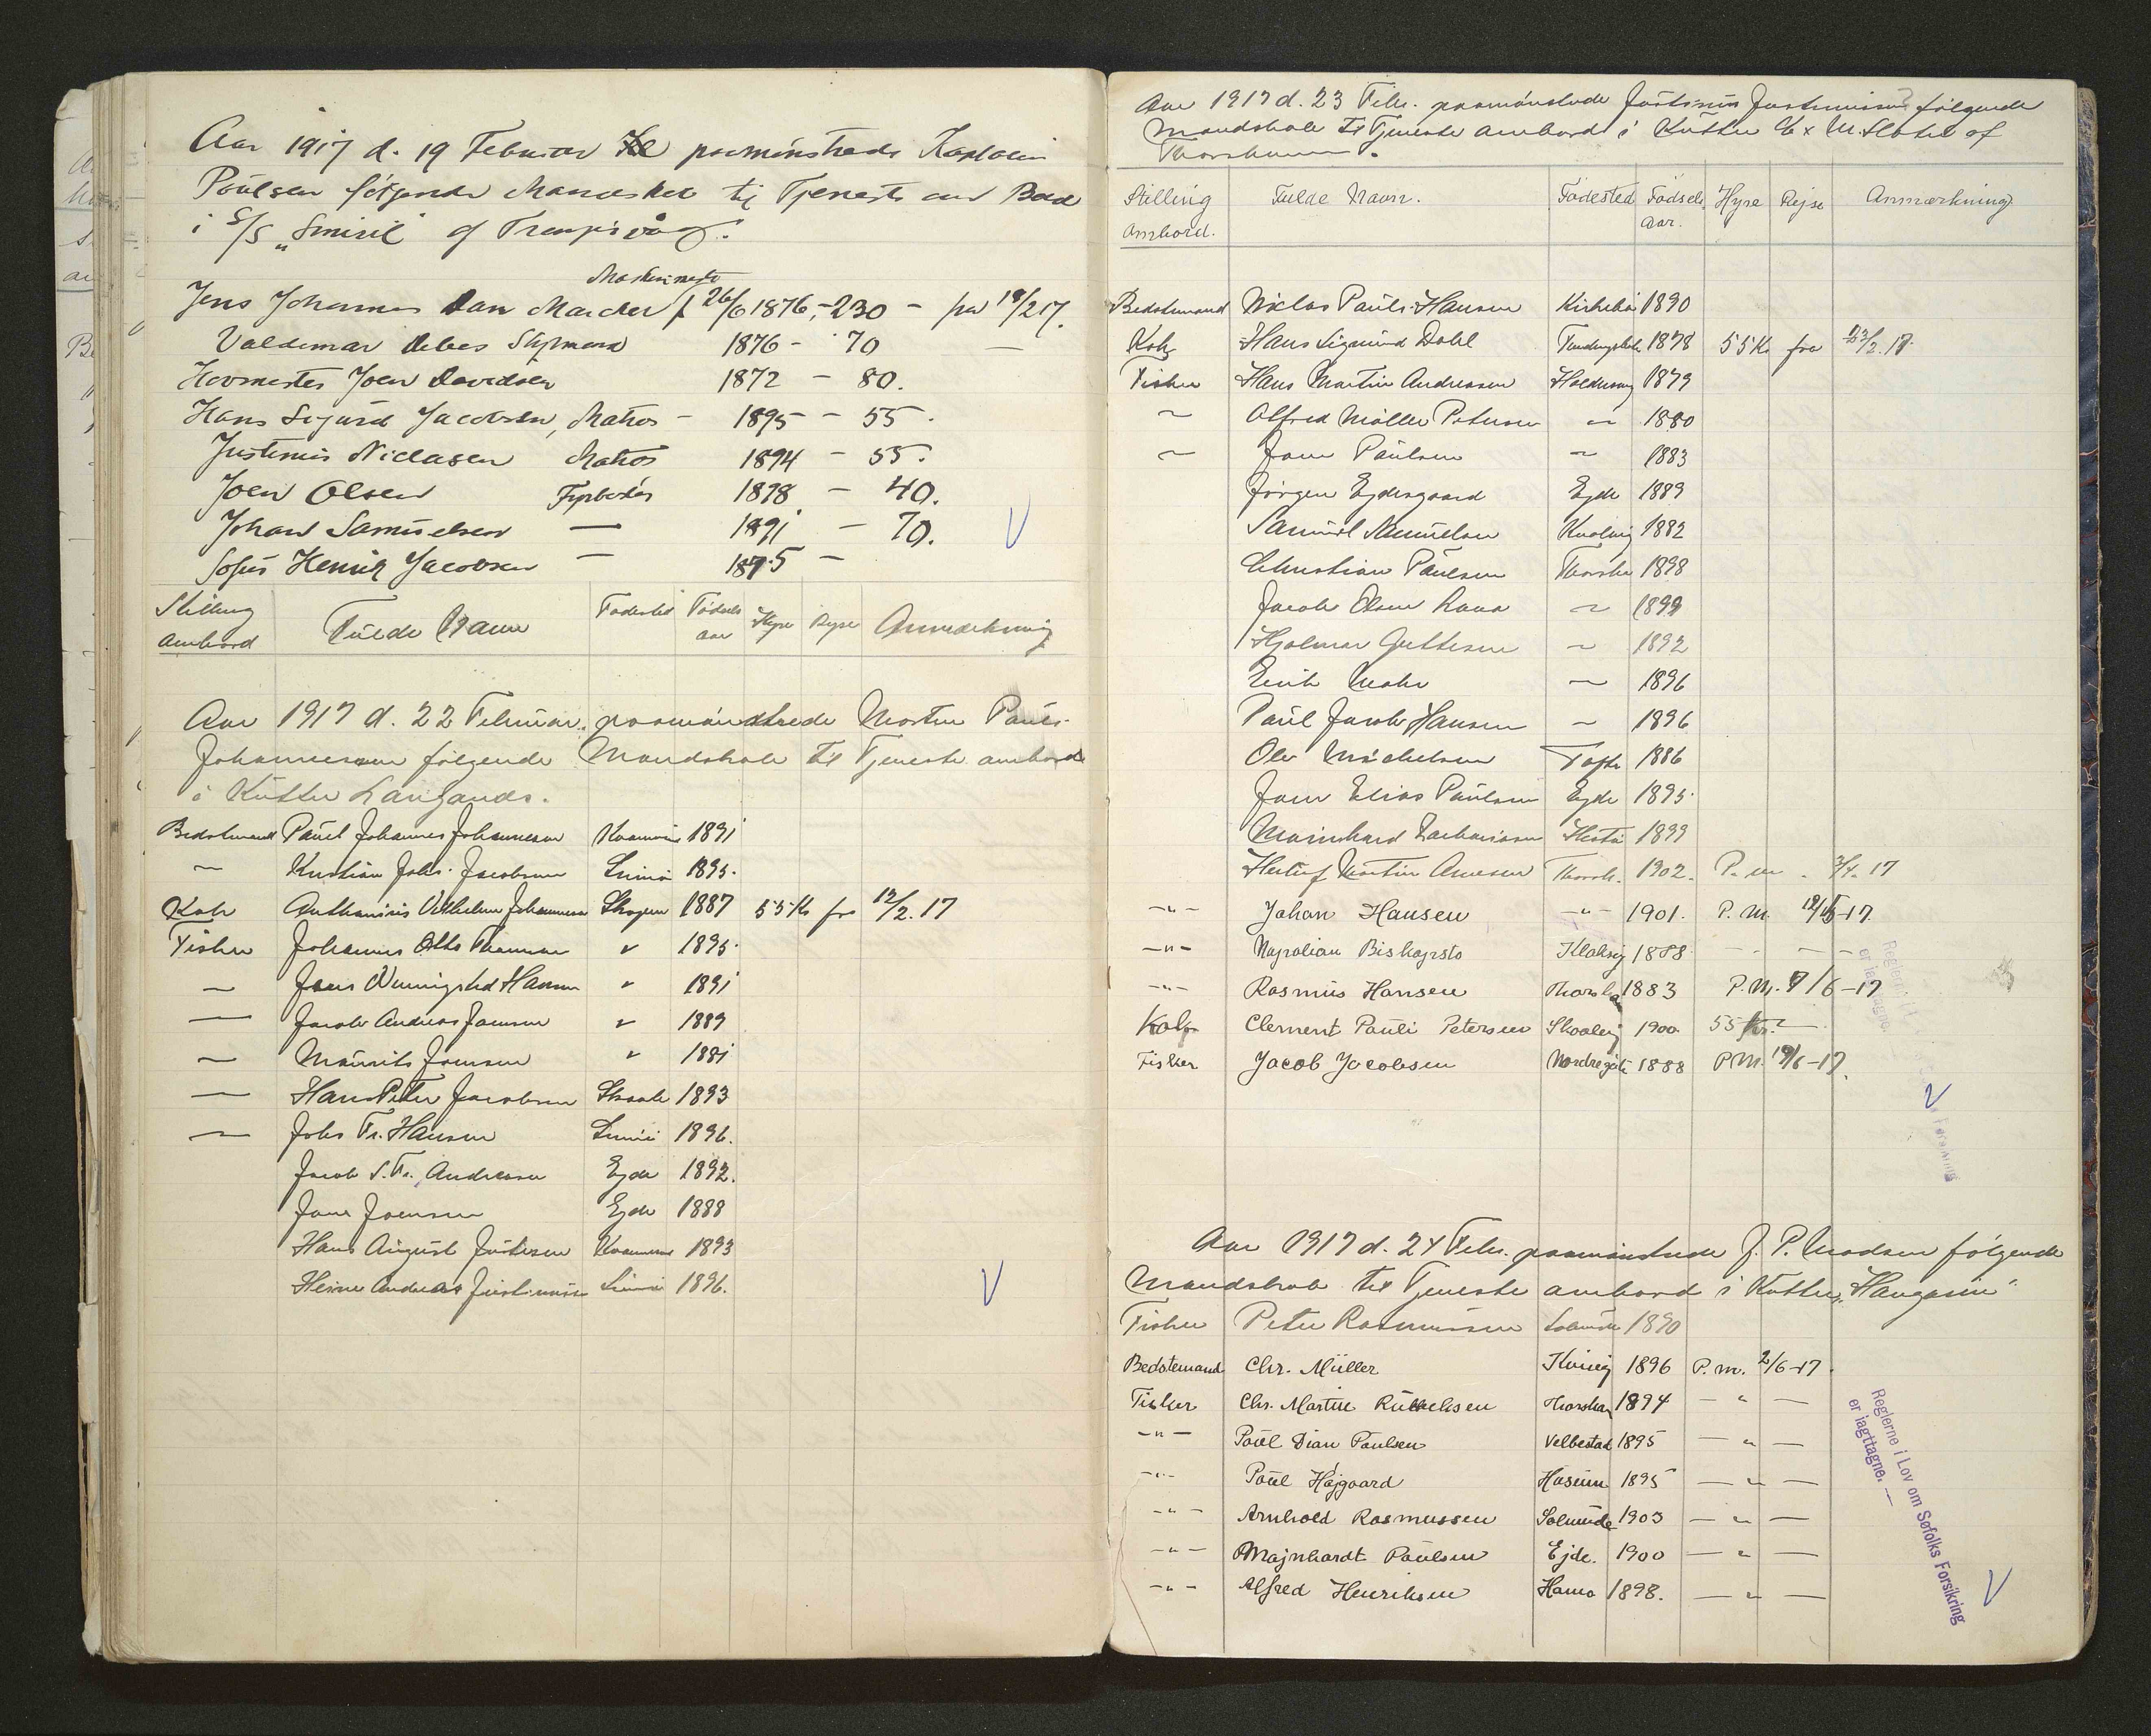 Aar 1917 d. 19 Februar paamönstrede Kaptain
Poulsen følgende Mandskab til Tjeneste om Bord
i S/S „Smiril" af Trangisvåg.
Maskinmester
Jens Johannes Dan Marcher f 26/6 1876, - 230 - fra 18/2 17.
Valdemar Debes Styrmand 1876 - 70 —
Hovmester Joen Davidsen 1872 - 80.
Hans Sigurd Jacobsen, Matros - 1895 - - 55 -
Justinus Niclasen Matros 1894 - 55.
Joen Olsen Fyrbøder 1898 - 40.
Johan Samuelsen — 1891 - 70.
Sofus Henrik Jacobsen — 1895 -
Stilling Ambord Fulde Navn Fødested Fødsels Aar Hyre Rejse Anmærkning
Aar 1917 d. 22 Februar paamönstrede Morten Pauls.
Johannesen følgende Mandskab til Tjeneste ambord
i Kutter Langanæs.
Bedstemand Paul Johannes Johannesen 1891
— Kristian Johs. Jacobsen 1895.
Kok Vilhelm Johannesen Skopun 1887 55 Kr fra 12/2. 17
Fisker Johannes Otto " 1895.
— Hansen " 1891
— Jacob Andreas Joensen " 1889
— Maurits Joensen " 1881
— Hans Peter Jacobsen Skaale 1893
— Johs Fr. Hansen 1896.
Jacob S. Fr. Andreasen Ejde 1892.
Jone Joensen Ejde 1888
Hans August Justesen 1893
Heine Andreas Justinussen 1896.
Aar 1917 d. 23 Febr. paamönstrede Justinus Justinussen følgende
Mandskab til Tjeneste ambord i Kutter af
Thorshavn.
Stilling Ambord. Fulde Navn. Fødested Fødsels Aar. Hyre Rejse Anmærkning
Bedstemand Niclas Pauls. Hansen Kirkebø 1890
Kok Hans Sigmund Dahl 1878 55 Kr fra 23/2. 17.
Fisker Hans Martin Andreasen Holdersvig 1879
— Alfred Møller Petersen — 1880
— Joen Paulsen — 1883
Jørgen Ejdesgaard Ejde 1889
Samuel Samuelsen Kvalvig 1882
Christian Paulsen Thorshn 1898
Jacob Olsen Rana — 1899
Hjalmar Guttesen — 1892
Erik Mohr — 1896
Paul Jacob Hansen — 1896
Ole Michelsen Tofte 1886
Joen Elias Paulsen Ejde 1895
Mainhard Zachariasen Hestø 1899
Martin Arnesen Thorsh. 1902. P. m. 3/4. 17
—"— Johan Hansen —"— 1901. P. M. -17.
—"— Napolian Biskopstø Klaksvig 1888 - — —
—"— Rasmus Hansen Thorshavn 1883 P. M. 7/6 -17
Kok Clement Pauli Petersen Skaalevig 1900 55 Kr. —
Fisker Jacob Jacobsen Nordregøte 1888 P.M. 19/6 -17.
Aar 1917 d. 24 Febr. paamönstrede J. P. Madsen følgende
Mandskab til Tjeneste ambord i Kutter
Fisker Peter Rasmussen Solmunde 1890
Bedstemand Chr. Müller Kvivig 1896 P. m. 2/6 -17.
Fisker Chr. Martin Thorshavn 1894 — " —
—"— Poul Dian Poulsen Velbestad 1895 — " —
—"— Poul Højgaard Husum 1895 — " —
—"— Arnhold Rasmussen Solmunde 1903 — " —
—"— Majnhardt Poulsen Ejde. 1900 — " —
—"— Alfred Henriksen 1898. — " —
Reglerne i Lov om Søfolks Forsikring
er iagttagne. —